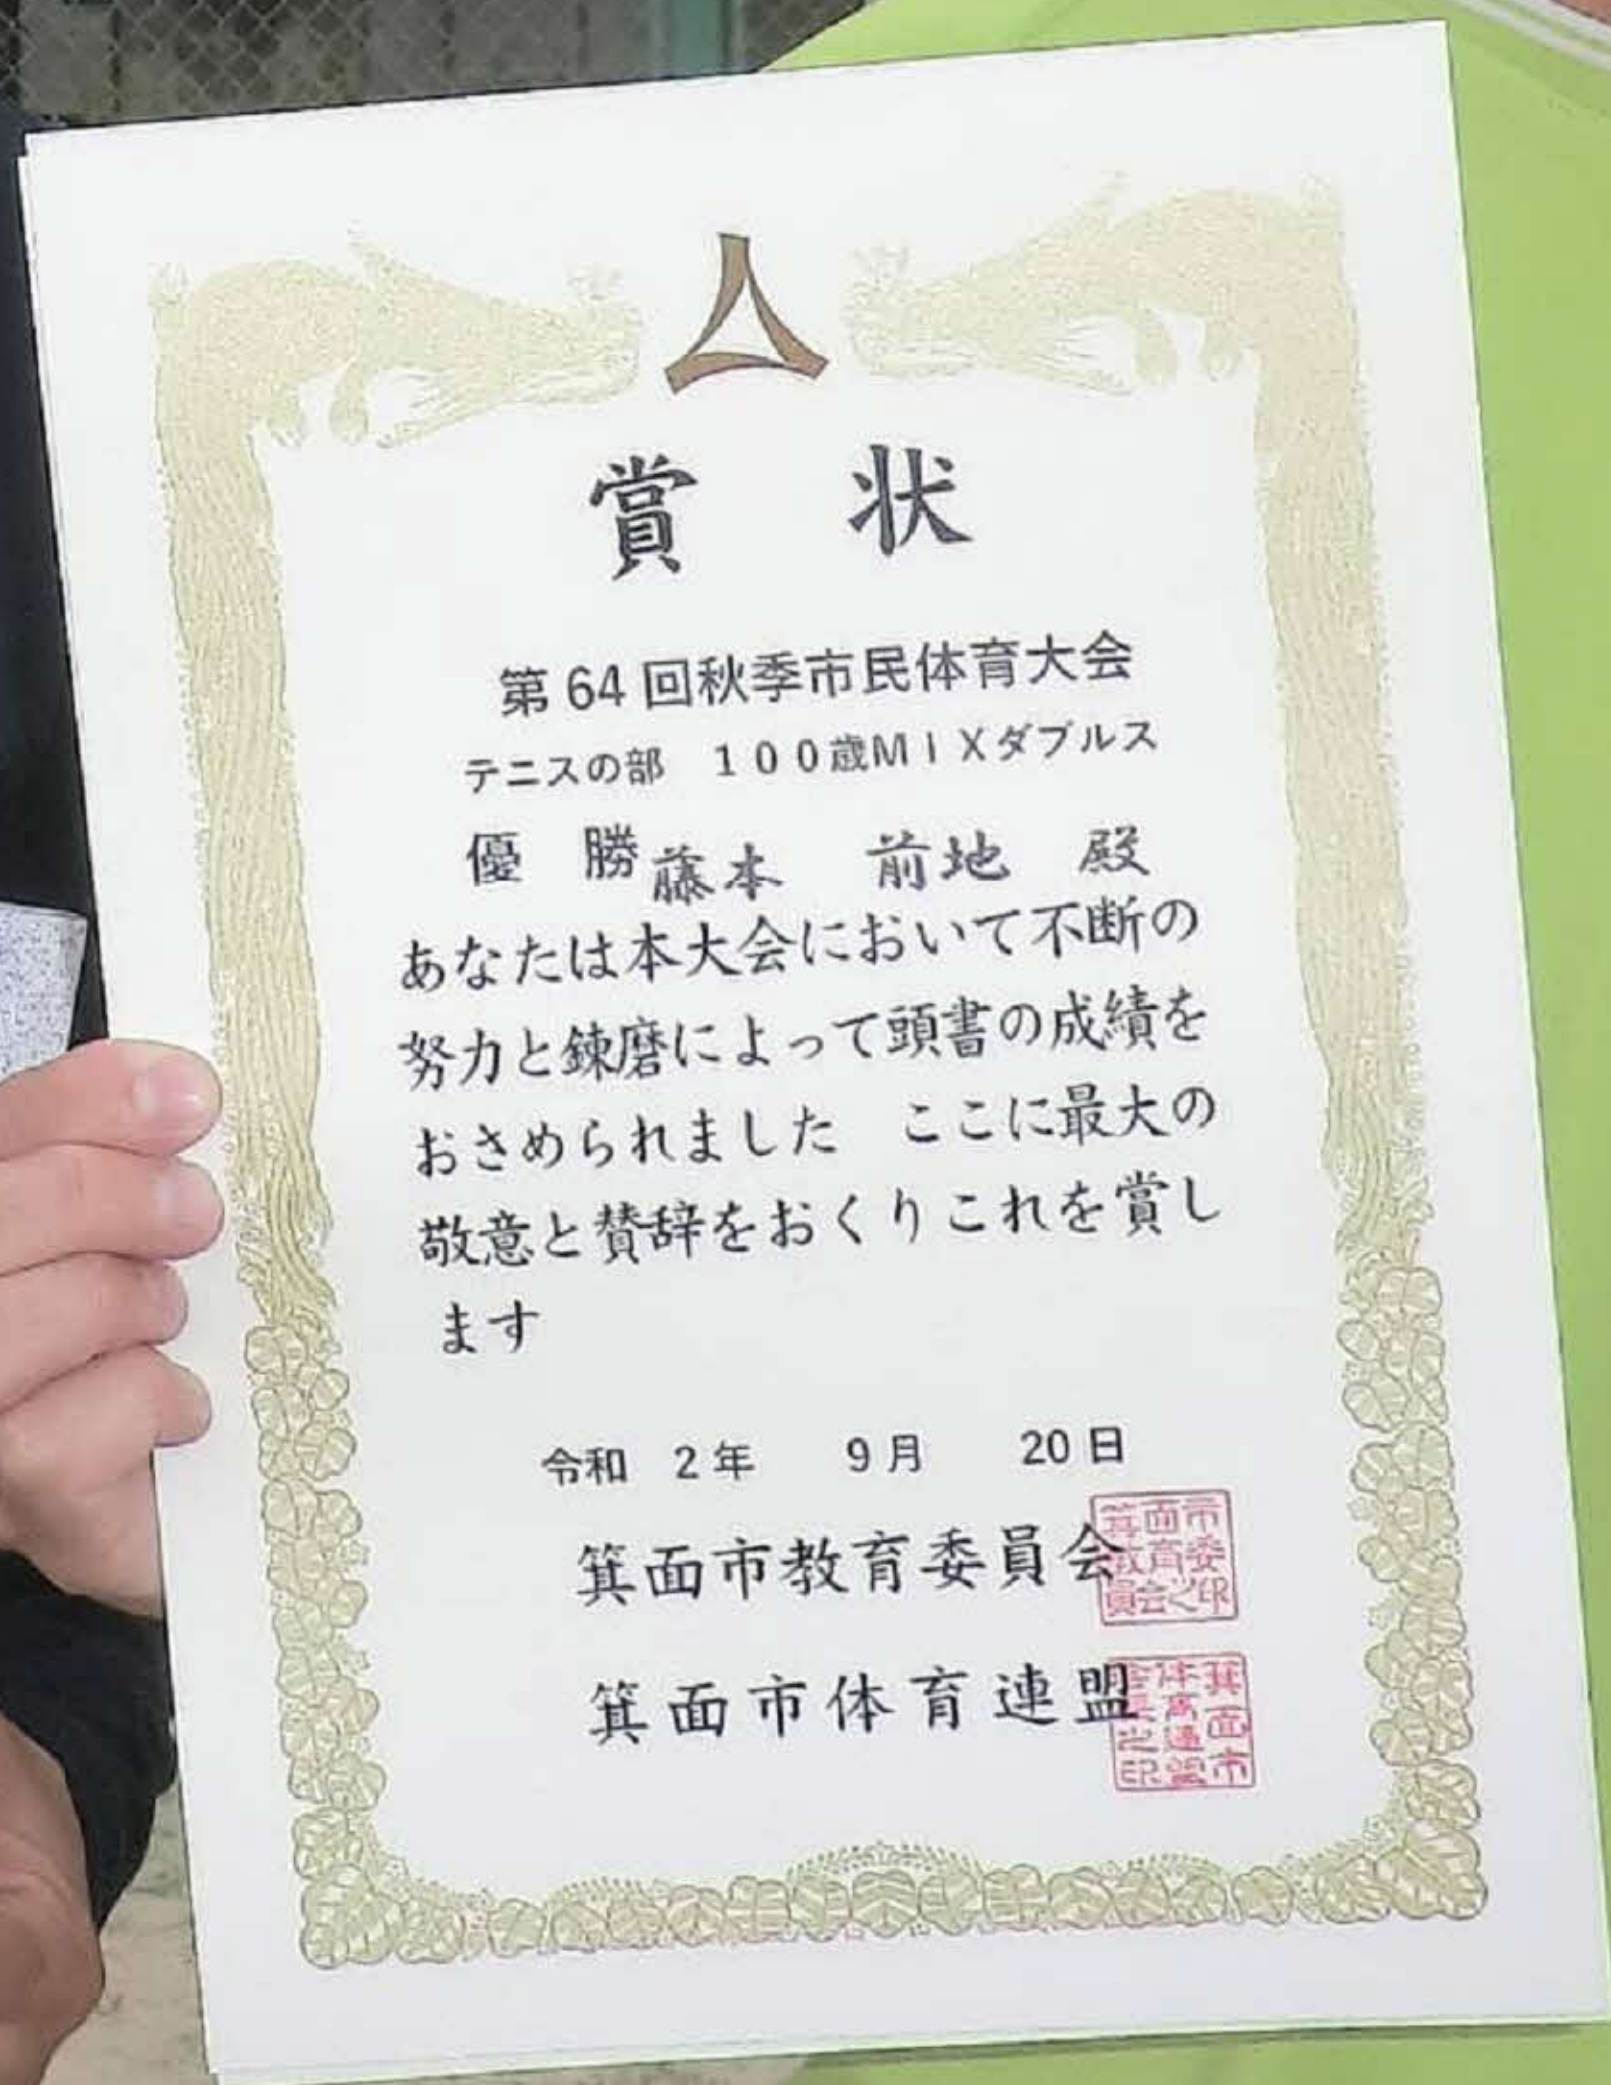 賞 状
第64回秋季市民体育大会
テニスの部 100歳MIXダブルス
優 勝 藤本 前地 殿
あなたは本大会において不断の
努力と錬磨によって頭書の成績を
おさめられました ここに最大の
敬意と賛辞をおくりこれを賞し
ます
令和 2年 9月 20日
箕面市教育委員会
箕面市教育委員会之印
箕面市体育連盟